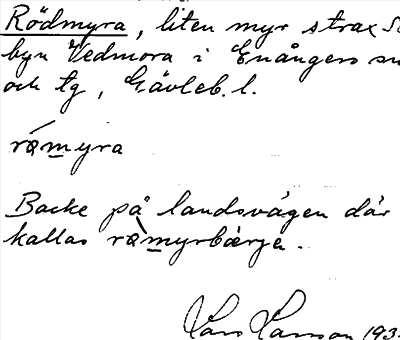 Rödmyra, liten myr strax
byn Vedmora i Enångers sn
och tg, Gävleb. l.
rǿmyra
Backe på landsvägen där
kallas rømyrbærjen.
Lars Larsson 193